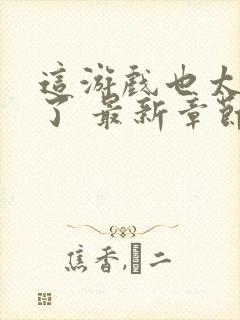 這游戲也太
了 最新章節
焦香,二